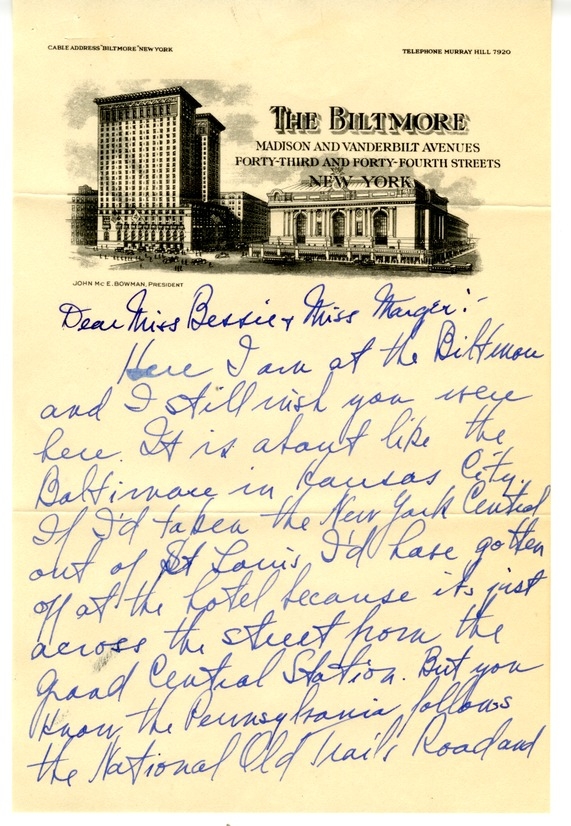 CABLE ADDRESS "BILTMORE" NEW YORK
TELEPHONE MURRAY HILL 7920
THE BILTMORE
MADISON AND VANDERBILT AVENUES
FORTY-THIRD AND FORTY-FOURTH STREETS
NEW YORK
JOHN MC E. BOWMAN, PRESIDENT
Dear Miss Bessie & Miss Marger:-
Here I am at the Biltmore
and I still wish you were
here. It is about like the
Baltimore in Kansas City.
If I'd taken the New York Central
out of St Louis I'd have gotten
off at the hotel because its just
across the street from the
Grand Central Station. But you
know the Pennsylvania follows
the National Old Trails Road and